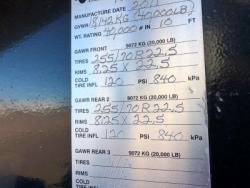 MANUFACTURE DATE 2011
GVWR 18142KG (40000LB)
WT. RATING 40,000 # IN 10 FT
GAWR FRONT 9072 KG (20,000 LB)
TIRES 255/70R22.5
RIMS 8.25 X 22.5
COLD
TIRE INFL 120 PSI 840 kPa
GAWR REAR 2 9072 KG (20,000 LB)
TIRES 255/70R22.5
RIMS 8.25 X 22.5
COLD
TIRE INFL 120 PSI 840 kPa
GAWR REAR 3 9072 KG (20,000 LB)
TIRES
RIMS